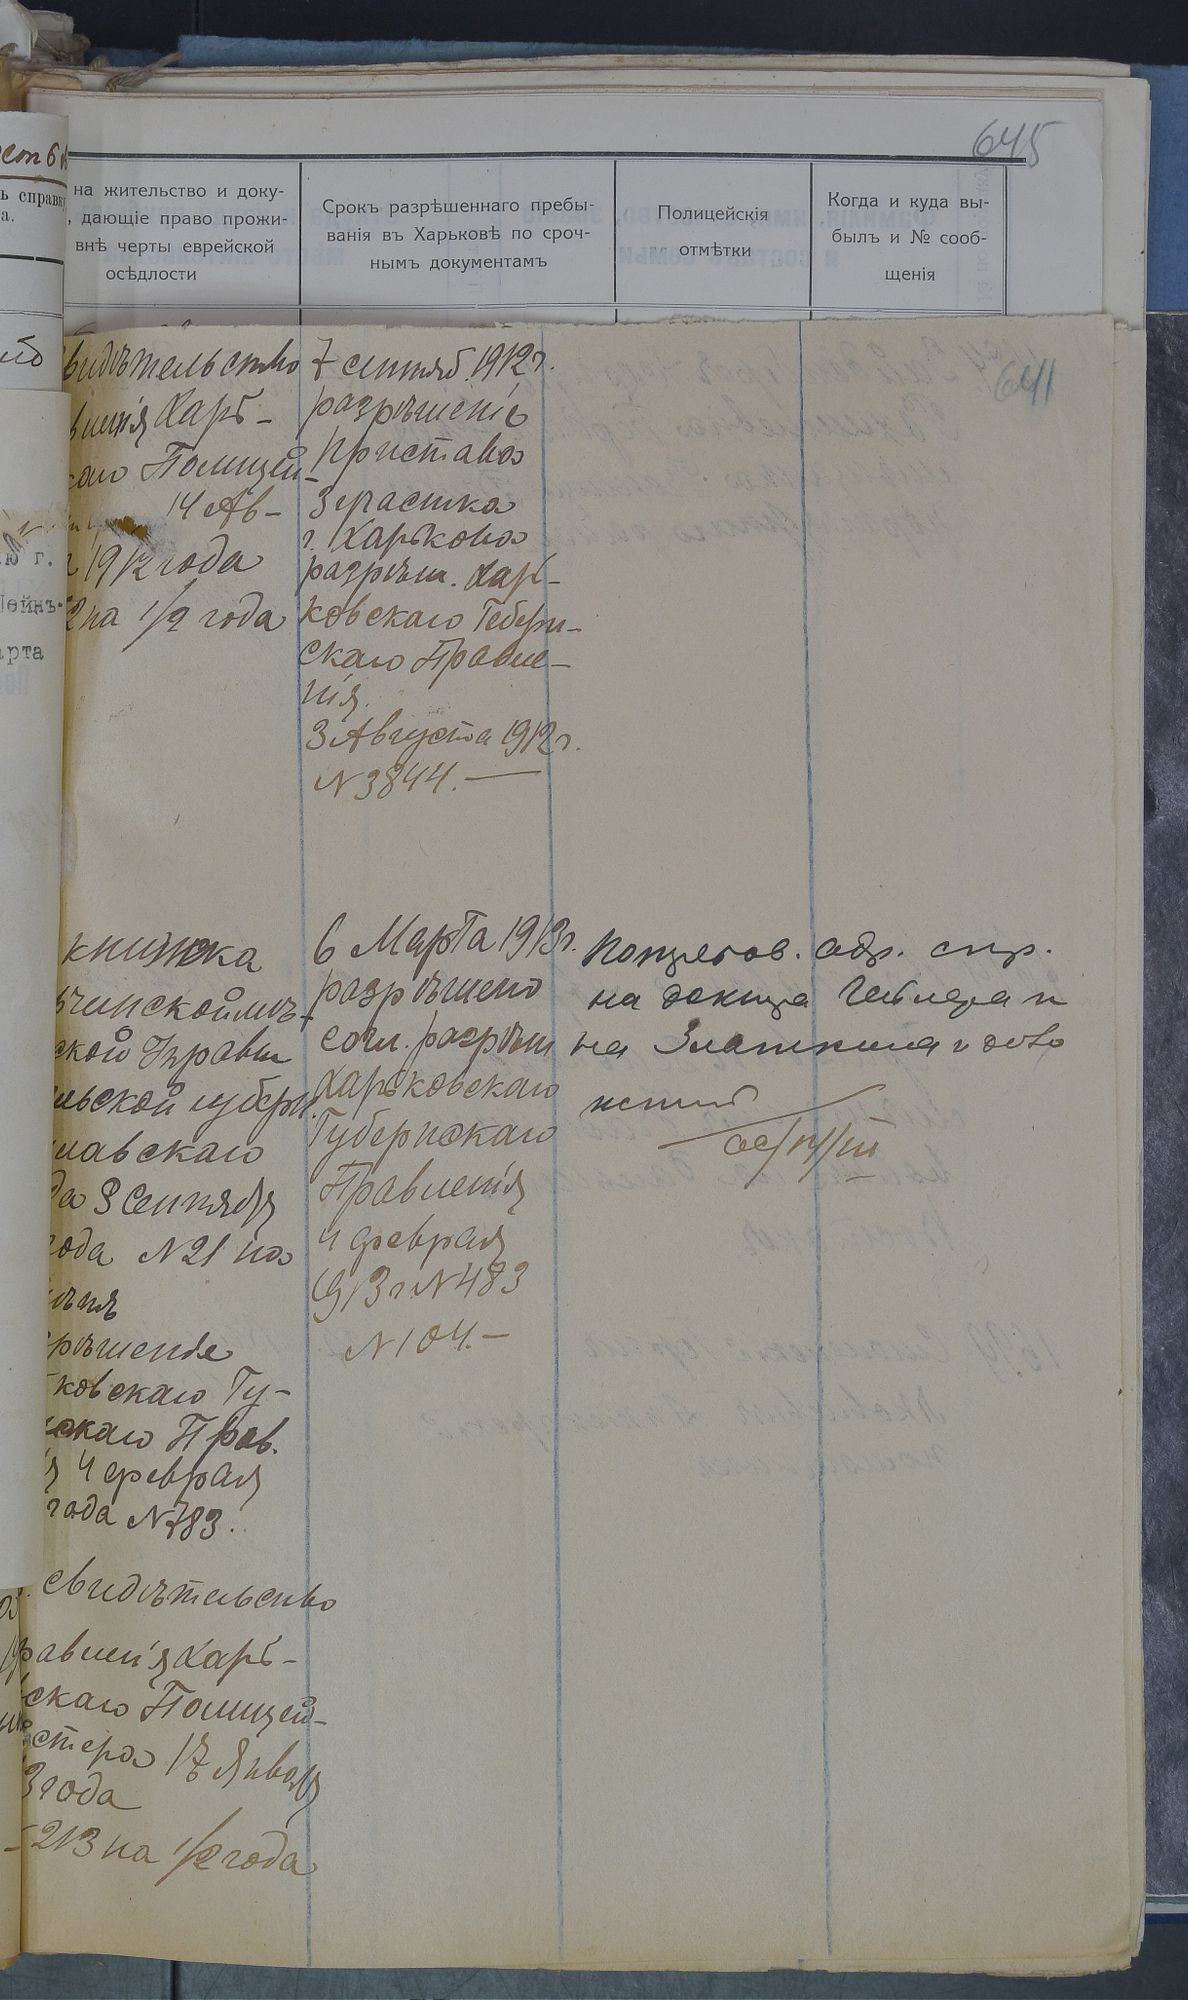 645
ь справку
а.
на жительство и доку-
, дающіе право прожи-
внѣ черты еврейской
осѣдлости
Срокъ разрѣшеннаго пребы-
ванія въ Харьковѣ по сроч-
нымъ документамъ
Полицейскія
отмѣтки
Когда и куда вы-
былъ и № сооб-
щенія
641
ю г.
Лейнъ-
арта
видѣтельство
вленія Харь-
каго Полицей-
14 Ав-
1912 года
2 на 1/2 года
7 сентяб. 1912 г.
разрѣшеніе
Пристава
3 участка
г. Харькова
разрѣш. Харь-
ковскаго Губерн-
скаго Правле-
нія.
3 Августа 1912 г.
N 3844.—
книжка
ской Управы
льской губерн.
лавскаго
да 8 Сентября
года N 21 на
рѣшеніе
ковскаго Гу-
скаго Прав.
я 4 февраля
года N 783.
6 Марта 1913 г.
разрѣшено
согл. разрѣш
Харьковскаго
Губернскаго
Правленія
4 февраля
1913 г. N 483
N 104.—
адр. спр.
на
на
свидѣтельство
равленія Харь-
скаго Полицей-
стера 17 Января
3 года
213 на 1/2 года